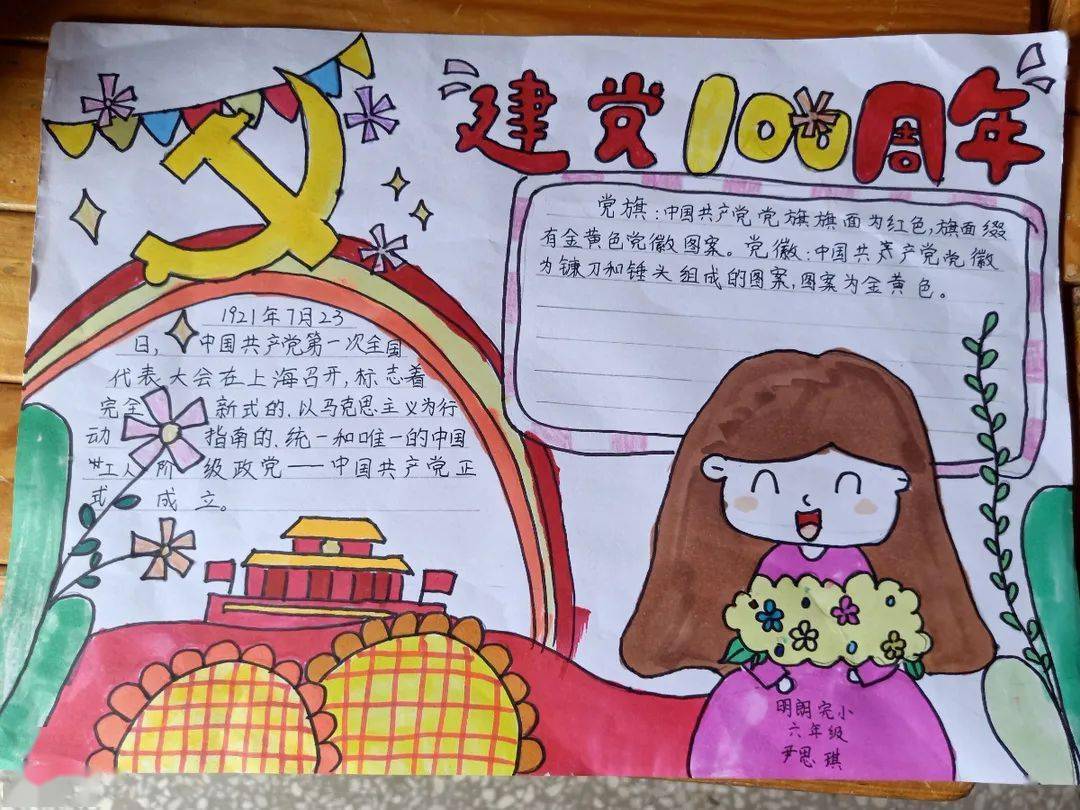 建党100周年
党旗:中国共产党党旗旗面为红色,旗面缀
有金黄色党徽图案。党徽:中国共产党党徽
为镰刀和锤头组成的图案,图案为金黄色。
1921年7月23
日,中国共产党第一次全国
代表大会在上海召开,标志着
完全新式的,以马克思主义为行
动指南的,统一和唯一的中国
工人阶级政党——中国共产党正
式成立。
明朗完小
六年级
尹思琪